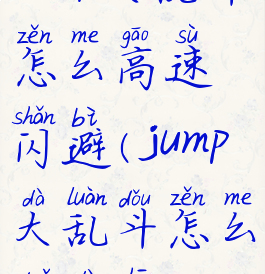 zěn me gāo sù
怎么高速
shǎn bì
闪避(jump
dà luàn dǒu zěn me
大乱斗怎么